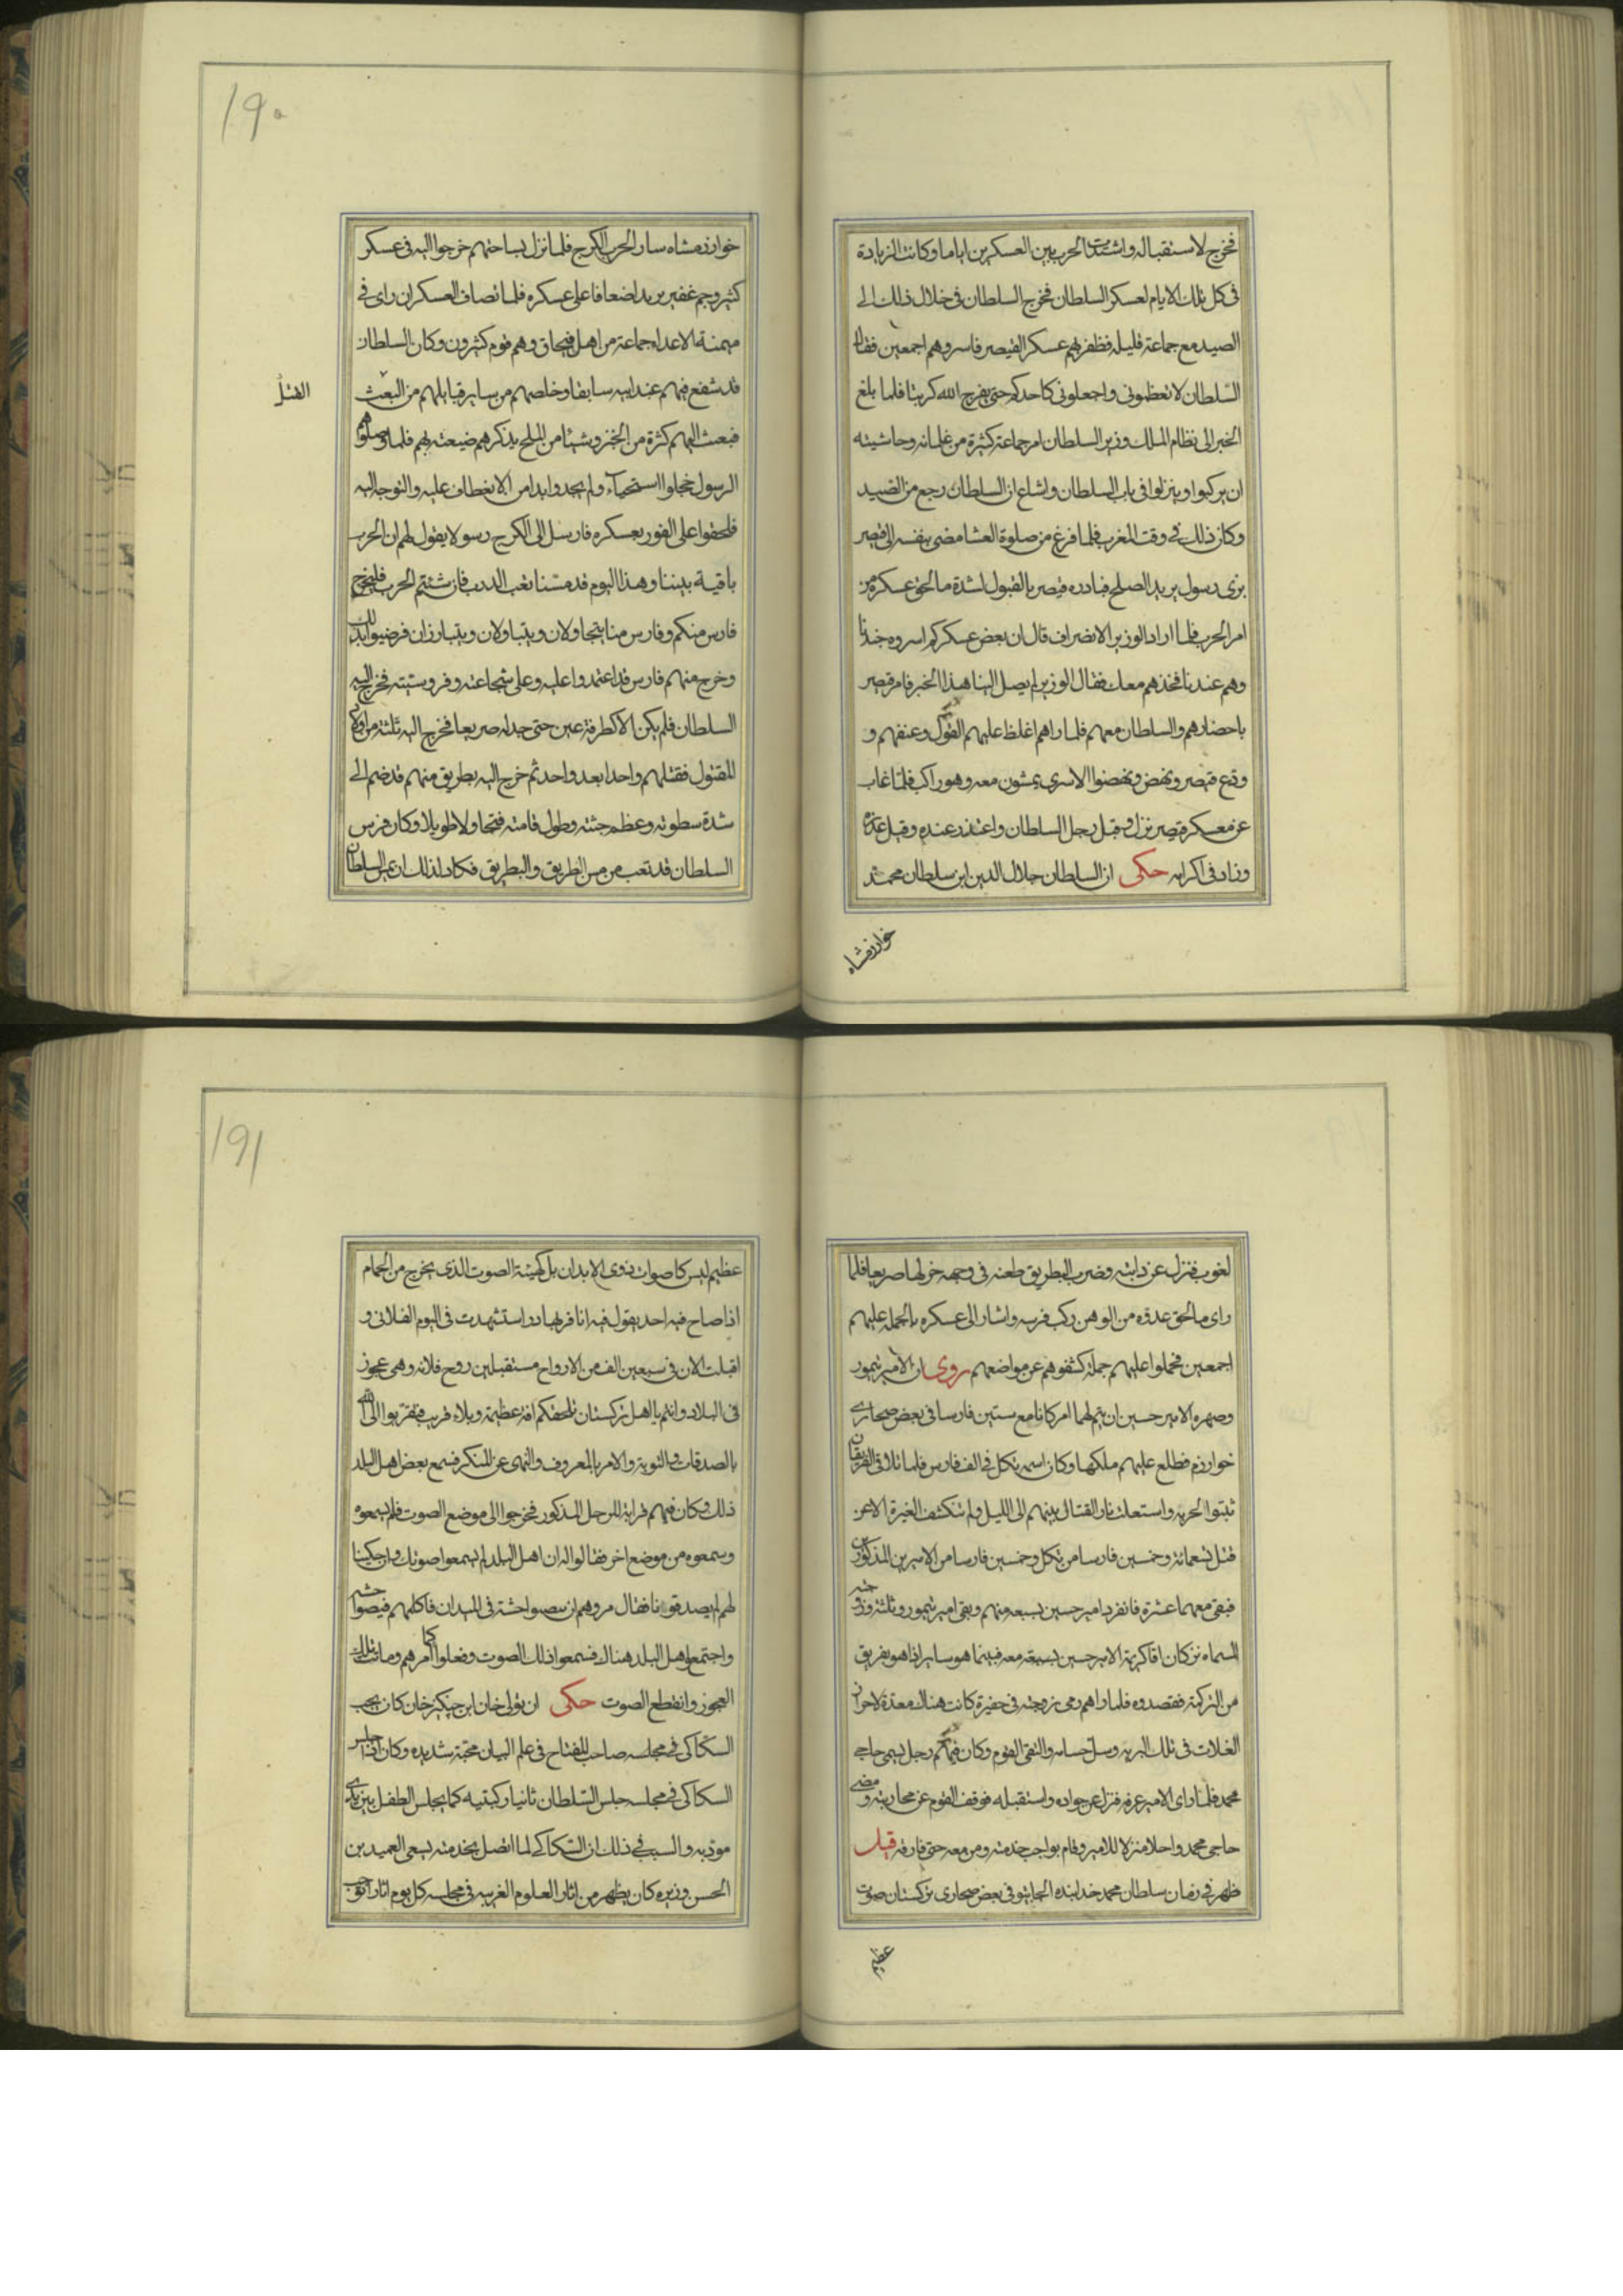 فخرج لاستقباله واشتدت الحرب بين العسكرين اياما وكانت الزيادة
فى كل تلك الايام لعسكر السلطان فخرج السلطان فى خلال ذلك الى
الصيد مع جماعة قليله فظفر بهم عسكر القيصر فاسروهم اجمعين فقال
السلطان لا تعظمونى واجعلونى كاحدكم حتى يفرج الله كربنا فلما بلغ
الخبر الى نظام الملك وزير السلطان امر جماعة كثيرة من غلمانه وحاشيته
ان يركبوا وينزلوا فى باب السلطان واشاع ان السلطان رجع من الصيد
وكان ذلك فى وقت المغرب فلما فرغ من صلوة العشا مضى بنفسه الى قيصر
بزى رسول يريد الصلح فبادره قيصر بالقبول لشدة ما لحق عسكره من
امر الحرب فلما اراد الوزير الانصراف قال ان بعض عسكركم اسروه جندنا
وهم عندنا فخذهم معك فقال الوزير لم يصل الينا هذا الخبر فامر قيصر
باحضارهم والسلطان معهم فلما راهم اغلظ عليهم القول وعنفهم و
ودع قيصر ونهض ونهضوا الاسرى يمشون معه وهو راكب فلما غاب
عن معسكر قيصر نزل وقبل رجل السلطان واعتذر عنده وقبل عذره
وزاد فى اكرامه حكى ان السلطان جلال الدين ابن سلطان محمد
خوارزمشاه
١٩٠
خوارزمشاه سار لحرب الكرج فلما نزل بساحتهم خرجوا اليه فى عسكر
كثير وجم غفير يزيد اضعافا على عسكره فلما تصاف العسكران راى فى
ميمنة الاعداء جماعة من اهل قبچاق وهم قوم كثيرون وكان السلطان
قد شفع فيهم عند ابيه سابقا وخلصهم من ساير قبايلهم من البعث
القتل
فبعث اليهم كثرة من الخبز وشيئا من الملح يذكرهم ضيعته بهم فلما وصلوا
الرسول خجلوا استحياء ولم يجدوا بدا من الانعطاف عليه والتوجه اليه
فلحقوا على الفور بعسكره فارسل الى الكرج رسولا يقول لهم ان الحرب
باقية بيننا وهذا اليوم قد مسنا تعب الدرب فان شئتم الحرب فليخرج
فارس منكم وفارس منا يتجاولان ويتباولان ويتبارزان فرضيوا بذلك
وخرج منهم فارس قد اعتمدوا عليه وعلى شجاعته وفروسيته فخرج اليه
السلطان فلم يكن الا كطرفة عين حتى جدله صريعا فخرج اليه ثلثة من اولاد
المقتول فقتلهم واحدا بعد واحد ثم خرج اليه بطريق منهم قد ضم الى
شدة سطوته وعظم جثته وطول قامته فتجاولا طويلا وكان فرس
السلطان قد تعب من مس الطريق والبطريق فكاد لذلك ان يمس السلطان
لغوب فنزل عن دابته وضرب البطريق طعنه فى وجهه خر لها صريعا فلما
راى ما لحق عدوه من الوهن ركب فرسه واشار الى عسكره بالحملة عليهم
اجمعين فحملوا عليهم حملة كشفوهم عن مواضعهم روى ان الامير تيمور
وصهره الامير حسين ان يتم لهما امر كانا مع ستين فارسا فى بعض صحارى
خوارزم فطلع عليهم ملكها وكان اسمه تكل فى الف فارس فلما تلاقى الفريقان
ثبتوا الحربه واستعلت نار القتال بينهم الى الليل ولم تنكشف الغبرة الا عن
قتل تسعمائة وخمسين فارسا من تكل وخمسين فارسا من الاميرين المذكورين
فبقى معهما عشرة فانفرد امير حسين بسبعه منهم وبقى امير تيمور وثلثة وزوجته
المسماه تركان اقا كريمة الامير حسين بسبعة معه فبينما هو ساير اذا هو بفريق
من التركمة فقصدوه فلما راهم رمى بزوجته فى حفيرة كانت هناك معدة لاحراز
الغلات فى تلك البريه وسل حسامه والتقى القوم وكان فيهم رجل يسمى حاجى
محمد فلما راى الامير عرفه فنزل عن جواده واستقبله فوقف القوم عن محاربته ومضى
حاجى محمد واحلا منزلا للامير وقام بواجب خدمته ومن معه حتى فارقه قيل
ظهر فى زمان سلطان محمد خدابنده الجايتو فى بعض صحارى تركستان صوت
عظيم
١٩١
عظيم ليس كاصوات ذوى الابدان بل كهيئة الصوت الذى يخرج من الحمام
اذا صاح فيه احد يقول فيه انا فرهاد واستشهدت فى اليوم الفلانى و
اقبلت الان فى سبعين الف من الارواح مستقبلين روح فلانه وهى عجوز
فى البلاد وانتم يا اهل تركستان تلحقكم افة عظيمة وبلاء قريب فتقربوا الى الله
بالصدقات والتوبة والامر بالمعروف والنهى عن المنكر فسمع بعض اهل البلد
ذلك وكان فيهم قرابة للرجل المذكور فخرجوا الى موضع الصوت فلم يسمعوه
وسمعوه من موضع اخر فقالوا له ان اهل البلد لم يسمعوا صوتك وان حكينا
لهم لم يصدقونا فقال مروهم ان ينصبوا خشبة فى الميدان فاكلمهم فنصبوا خشبه
واجتمع اهل البلد هناك فسمعوا ذلك الصوت وفعلوا كما امرهم وماتت تلك
العجوز وانقطع الصوت حكى ان تولى خان ابن چنكيز خان كان يحب
السكاكى فى مجلسه صاحب المفتاح فى علم البيان محبة شديده وكان اذا جلس
السكاكى فى مجلسه جلس السلطان ثانيا ركبتيه كما يجلس الطفل بين يدى
مودبه والسبب فى ذلك ان السكاكى لما اتصل بخدمته بسعى العميد بن
الحسن وزيره كان يظهر من اثار العلوم الغريبه فى مجلسه كل يوم اثارا توجب